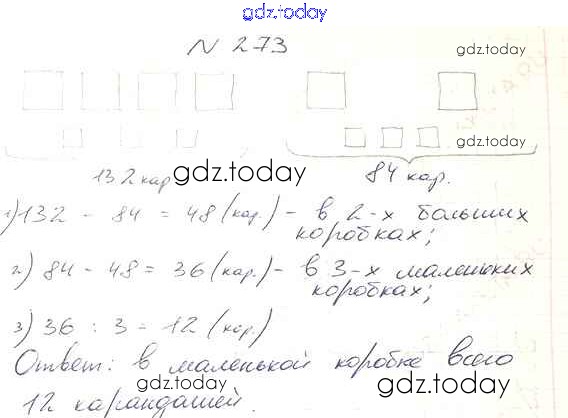 gdz.today
N 273
gdz.today
132 кар
gdz.today
84 кар.
1) 132 - 84 = 48 (кар.) - в 2-х больших
коробках;
2) 84 - 48 = 36 (кар.) - в 3-х маленьких
коробках;
3) 36 : 3 = 12 (кар.)
Ответ: в маленькой коробке всего
12 карандашей.
gdz.today
gdz.today